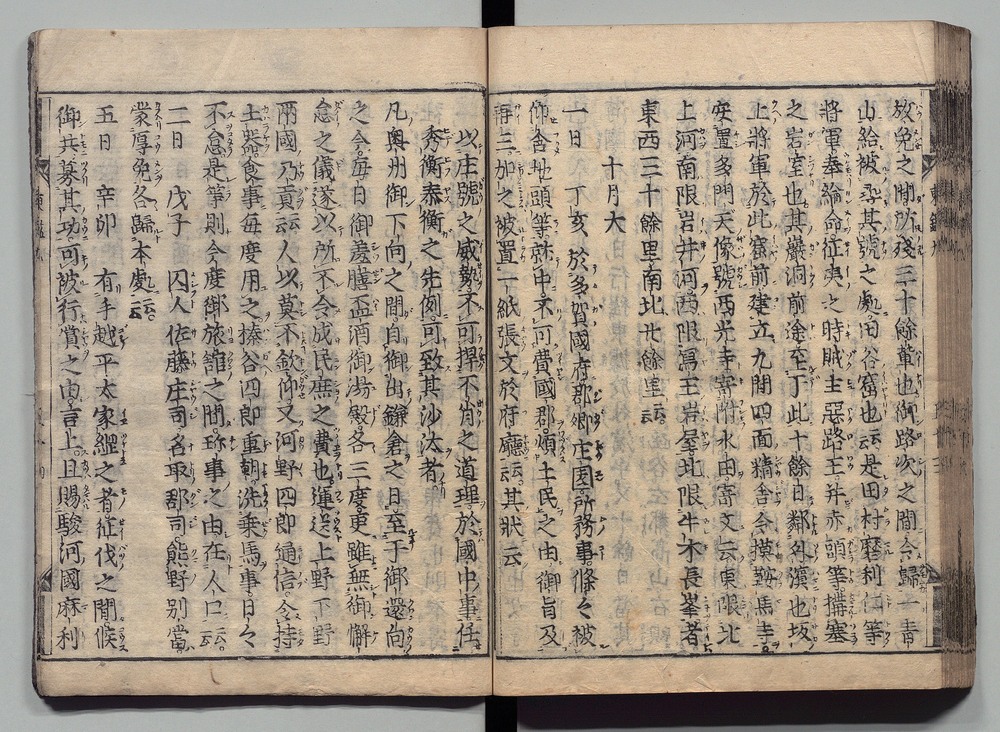 放免之間所殘三十餘輩也御路次之間令歸一青
山給被尋其號之處田谷窟也云是田村磨利仁等
將軍奉綸命征夷之時賊主惡路王并赤頭等搆塞
之岩室也其巖洞前途至于北十餘日鄰外濱也坂
上將軍於此窟前建立九間四面精舍令摸鞍馬寺
安置多門天像號西光寺寄附水田寄文云東限北
上河南限岩井河西限爲王岩屋北限牛木長峯者
東西三十餘里南北廿餘里云云
十月大
一日 丁亥 於多賀國府郡郷庄園所務事條々被
仰含地頭等就中不可費國郡煩土民之由御旨及
再三加之被置一紙張文於府廳云其狀云
以庄號之威勢不可押不肖之道理於國中事任
秀衡泰衡之先例可致其沙汰者
凡奥州御下向之間自御出鎌倉之日至于御還向
之今毎日御羞膳盃酒御湯殿各三度更雖無御懈
怠之儀遂以所不令成民庶之費也運送上野下野
兩國乃貢云人以莫不欽仰又河野四郎通信令持
土器食事毎度用之榛谷四郎重朝洗乗馬事日々
不怠是等則今度御旅舘之間珎事之由在人口云云
二日 戊子 囚人佐藤庄司名取郡司熊野別當
蒙厚免各歸本處云云
五日 辛卯 有手越平太家繼之者征伐之間候
御共募其功可被行賞之由言上且賜駿河國麻利